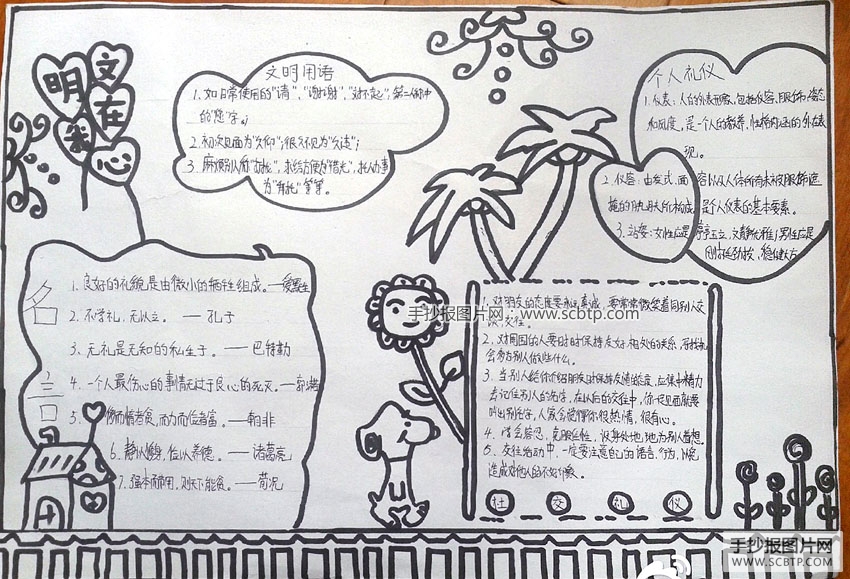 文明在我心
文明用语
1、如日常使用的“请”，“谢谢”，“对不起”，第二人称中
的“您”字。
2、初次见面为“久仰”；很久不见为“久违”；
3、麻烦别人称“打扰”，求给方便为“借光”，托人办事
为“拜托”等等。
个人礼仪
1、仪表：人的外表形象，包括仪容、服饰、姿态
和风度，是一个人的教养、性格内涵的外在表
现。
2、仪容：由发式、面容以及人体所有未被服饰遮
掩的肌肤所构成，是个人仪表的基本要素。
3、站姿：女性应是亭亭玉立，文静优雅；男性应是
刚劲挺拔，稳健大方
名言
1、良好的礼貌是由微小的牺牲组成。——爱默生
2、不学礼，无以立。——孔子
3、无礼是无知的私生子。——巴特勒
4、一个人最伤心的事情无过于良心的死灭。——郭沫若
5、侈而惰者贫，而力而俭者富。——韩非
6、静以修身，俭以养德。——诸葛亮
7、强本而节用，则天下能贫。——荀况
1、对朋友的态度要永远真诚，要常常微笑着同别人交
谈，交往。
2、对周围的人要时时保持友好相处的关系，寻找机
会多为别人做些什么。
3、当别人给你介绍朋友时保持友谊的态度，应集中精力
去记住别人的名字，在以后的交往中，你一见面就要
叫出别名字，人家会觉得你很热情，很有心。
4、学会容忍，克服任性，设身处地，地为别人着想。
5、交往活动中，一定要注意自己的语言，行为，以免
造成对他人的不好印象。
社 交 礼 仪
手抄报图片网：www.scbtp.com
手抄报图片网
WWW.SCBTP.COM